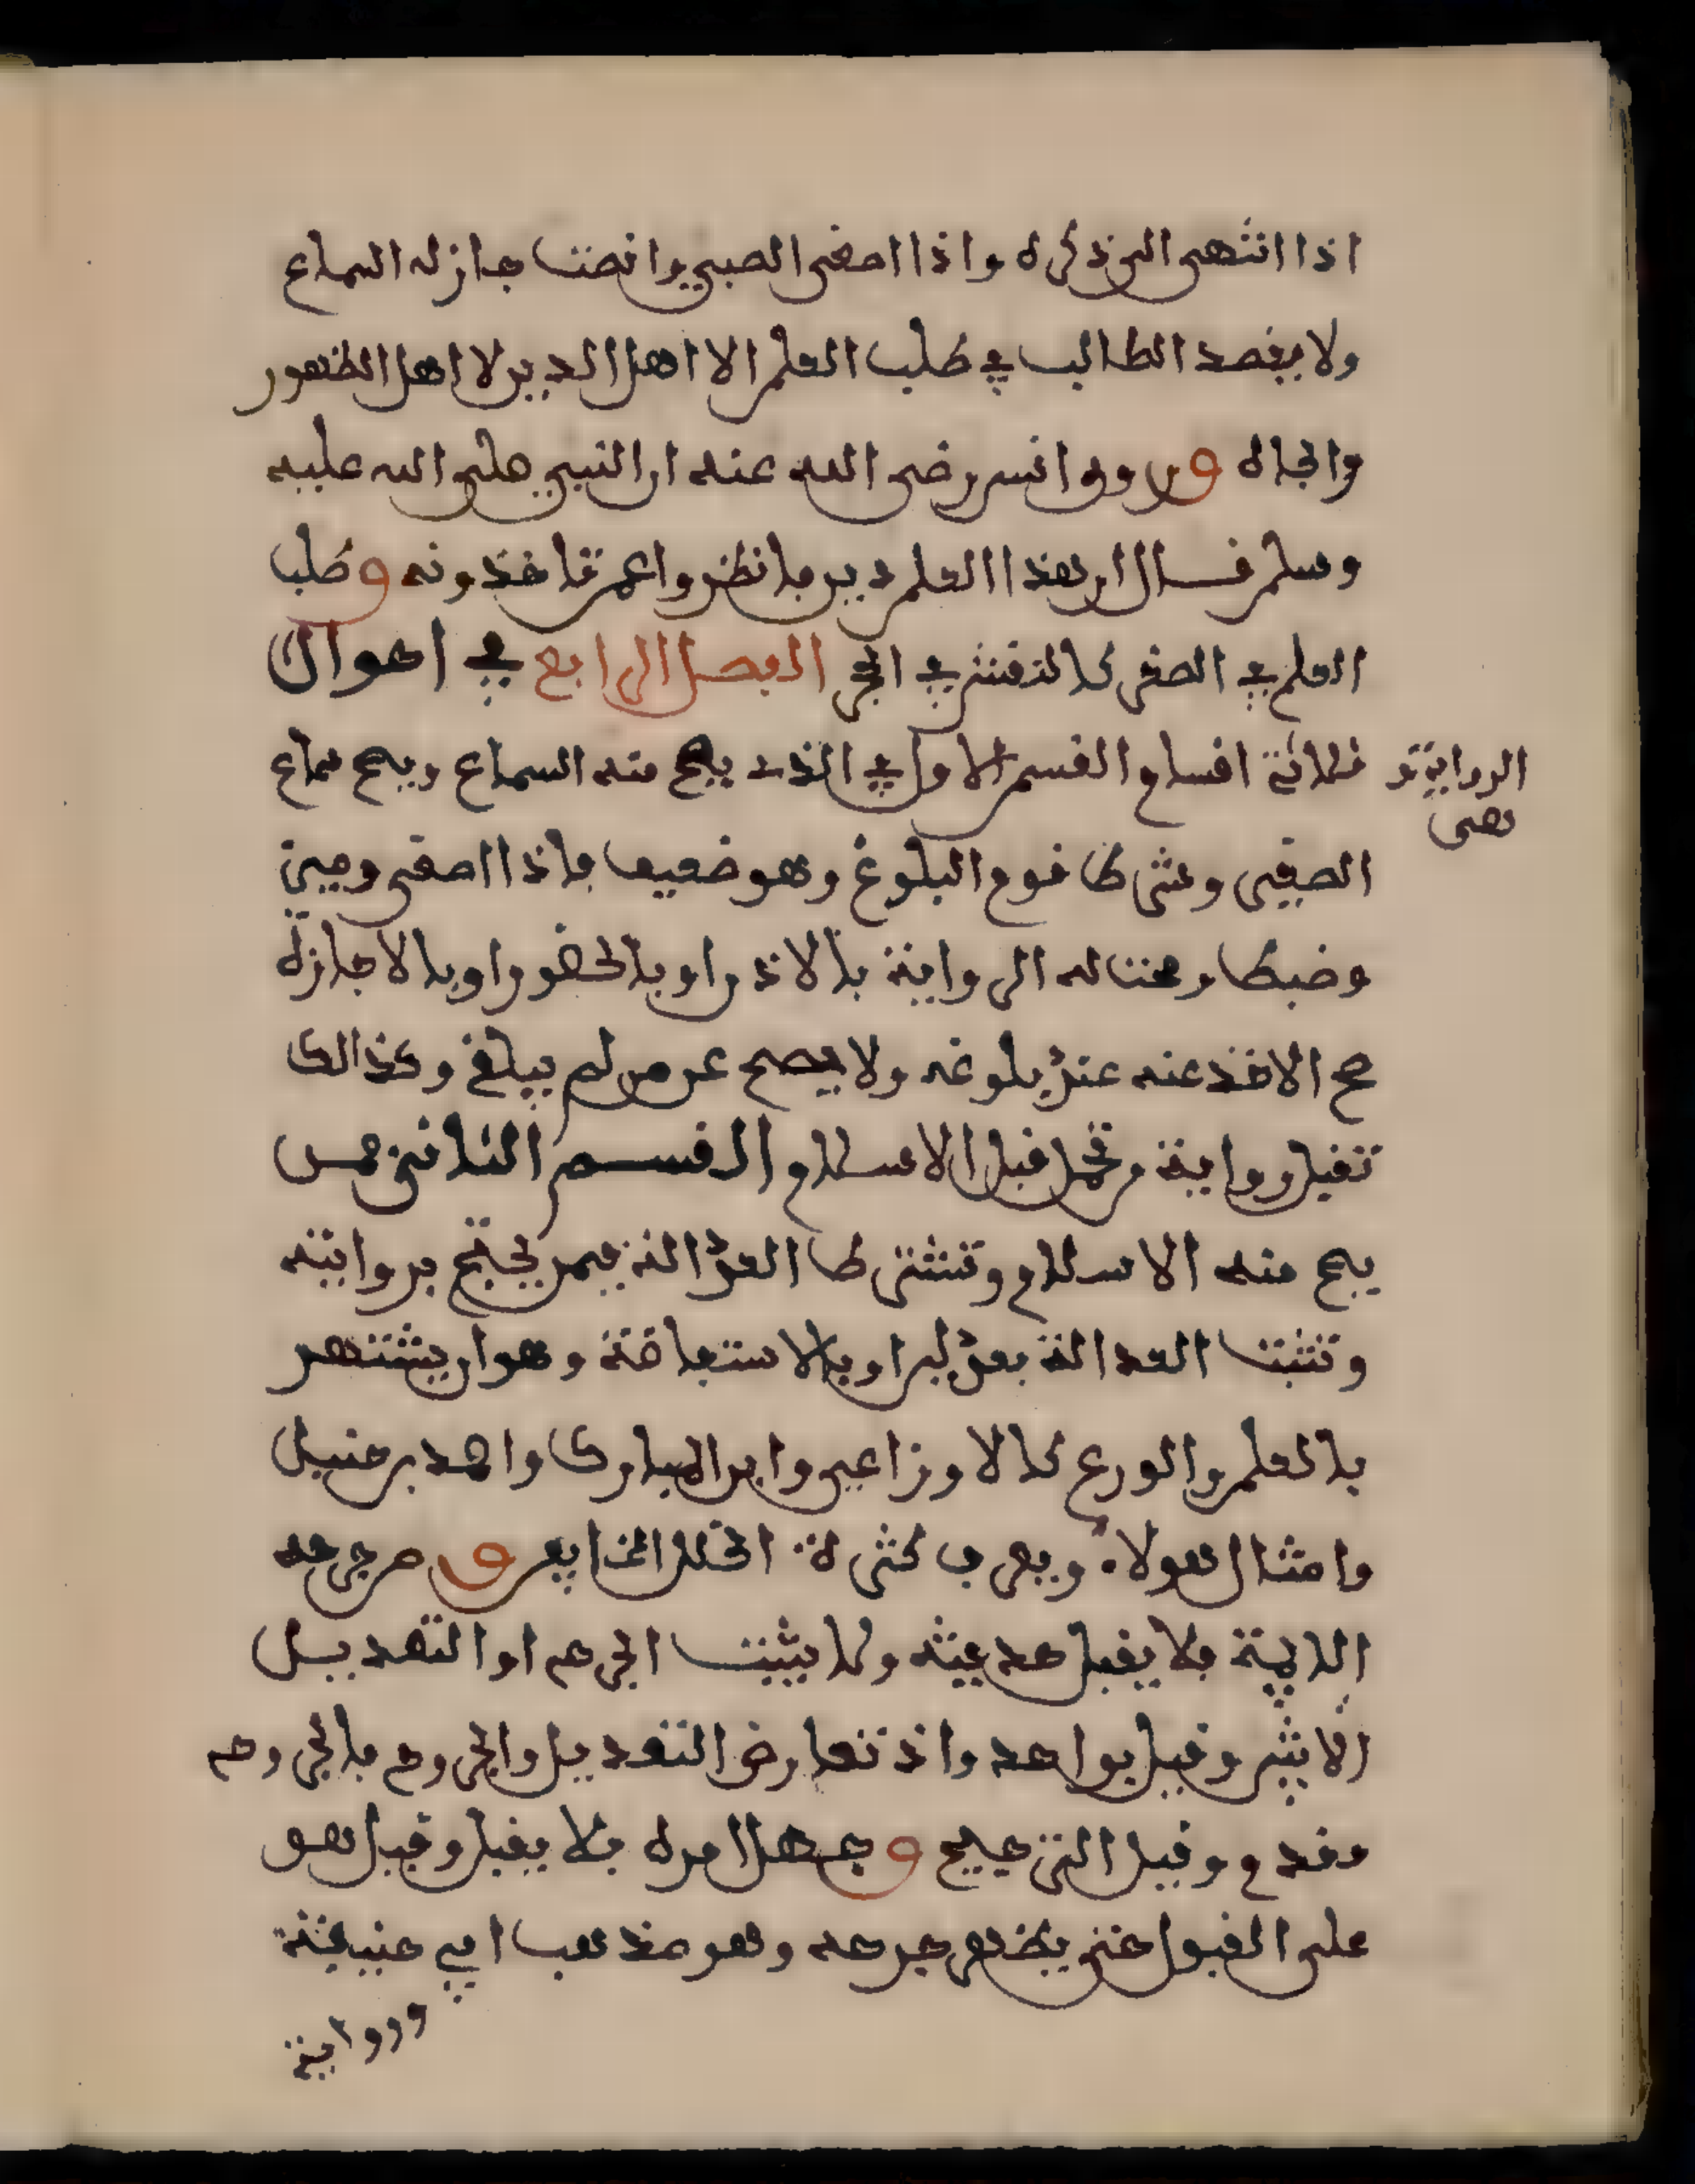 اذا انتهى الى ذكره واذا اصغى الصبي وانصت جاز له السماع
ولا يقصد الطالب في طلب العلم الا اهل الدين لا اهل الظهور
والجاه وروى انس رضي الله عنه ان النبي صلى الله عليه
وسلم قال ان هذا العلم دين فانظروا عمن تاخذونه وطلب
العلم في الصغر كالنقش في الحجر الفصل الرابع في احوال
الرواية وهي
ثلاثة اقسام القسم الاول في الذي يصح منه السماع ويصح سماع
الصغير وشرط قوم البلوغ وهو ضعيف فاذا اصغى وميز
وضبط وصحت له الرواية بالاذن او بالحضور او بالاجازة
صح الاخذ عنه عند بلوغه ولا يصح عن من لم يبلغ وكذالك
تقبل رواية من تحمل قبل الاسلام القسم الثاني من
يصح منه الاسلام وتشترط العدالة فيمن يحتج بروايته
وتثبت العدالة بعدلين او بالاستفاضة وهو ان يشتهر
بالعلم والورع كالاوزاعي وابن المبارك واحمد بن حنبل
وامثال هولاء ويعرف بكثرة الخلل الضابط ومن جرحه
الايمة فلا يقبل حديثه ولا يثبت الجرح او التعديل
الا باثنين وقيل بواحد واذ تعارض التعديل والجروح فالجروح
مقدم وقيل الترجيح ومن جهل امره فلا يقبل وقيل هو
على القبول حتى يظهر جرحه وهو مذهب ابي حنيفة
ورواية